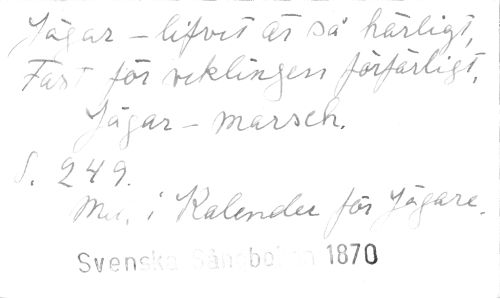 Jägar – lifvet är så härligt,
Fast för veklingen förfärligt,
Jägar – marsch.
S. 249.
Mus. i Kalender för Jägare.
Svenska Sångboken 1870